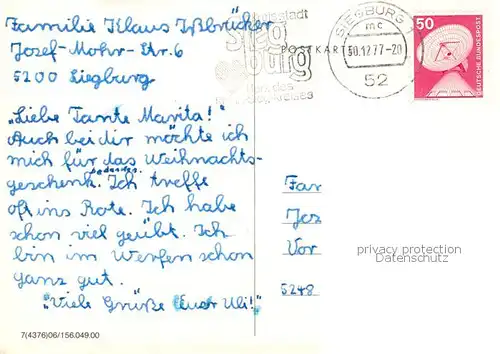 Familie Klaus Ißbrücker
Josef-Mohr-Str. 6
5200 Siegburg
"Liebe Tante Marita!"
Auch bei dir möchte ich
mich für das Weihnachts-
geschenk bedanden. Ich treffe
oft ins Rote. Ich habe
schon viel geübt. Ich
bin im Werfen schon
ganz gut.
"Viele Grüße Euer Uli!"
7(4376)06/156.049.00
stadt
Sieg
burg
des
kreises
POSTKARTE
SIEGBURG
mc
30.12.77-20
52
50
DEUTSCHE BUNDESPOST
Far
Jos
Vor
5248
privacy protection
Datenschutz